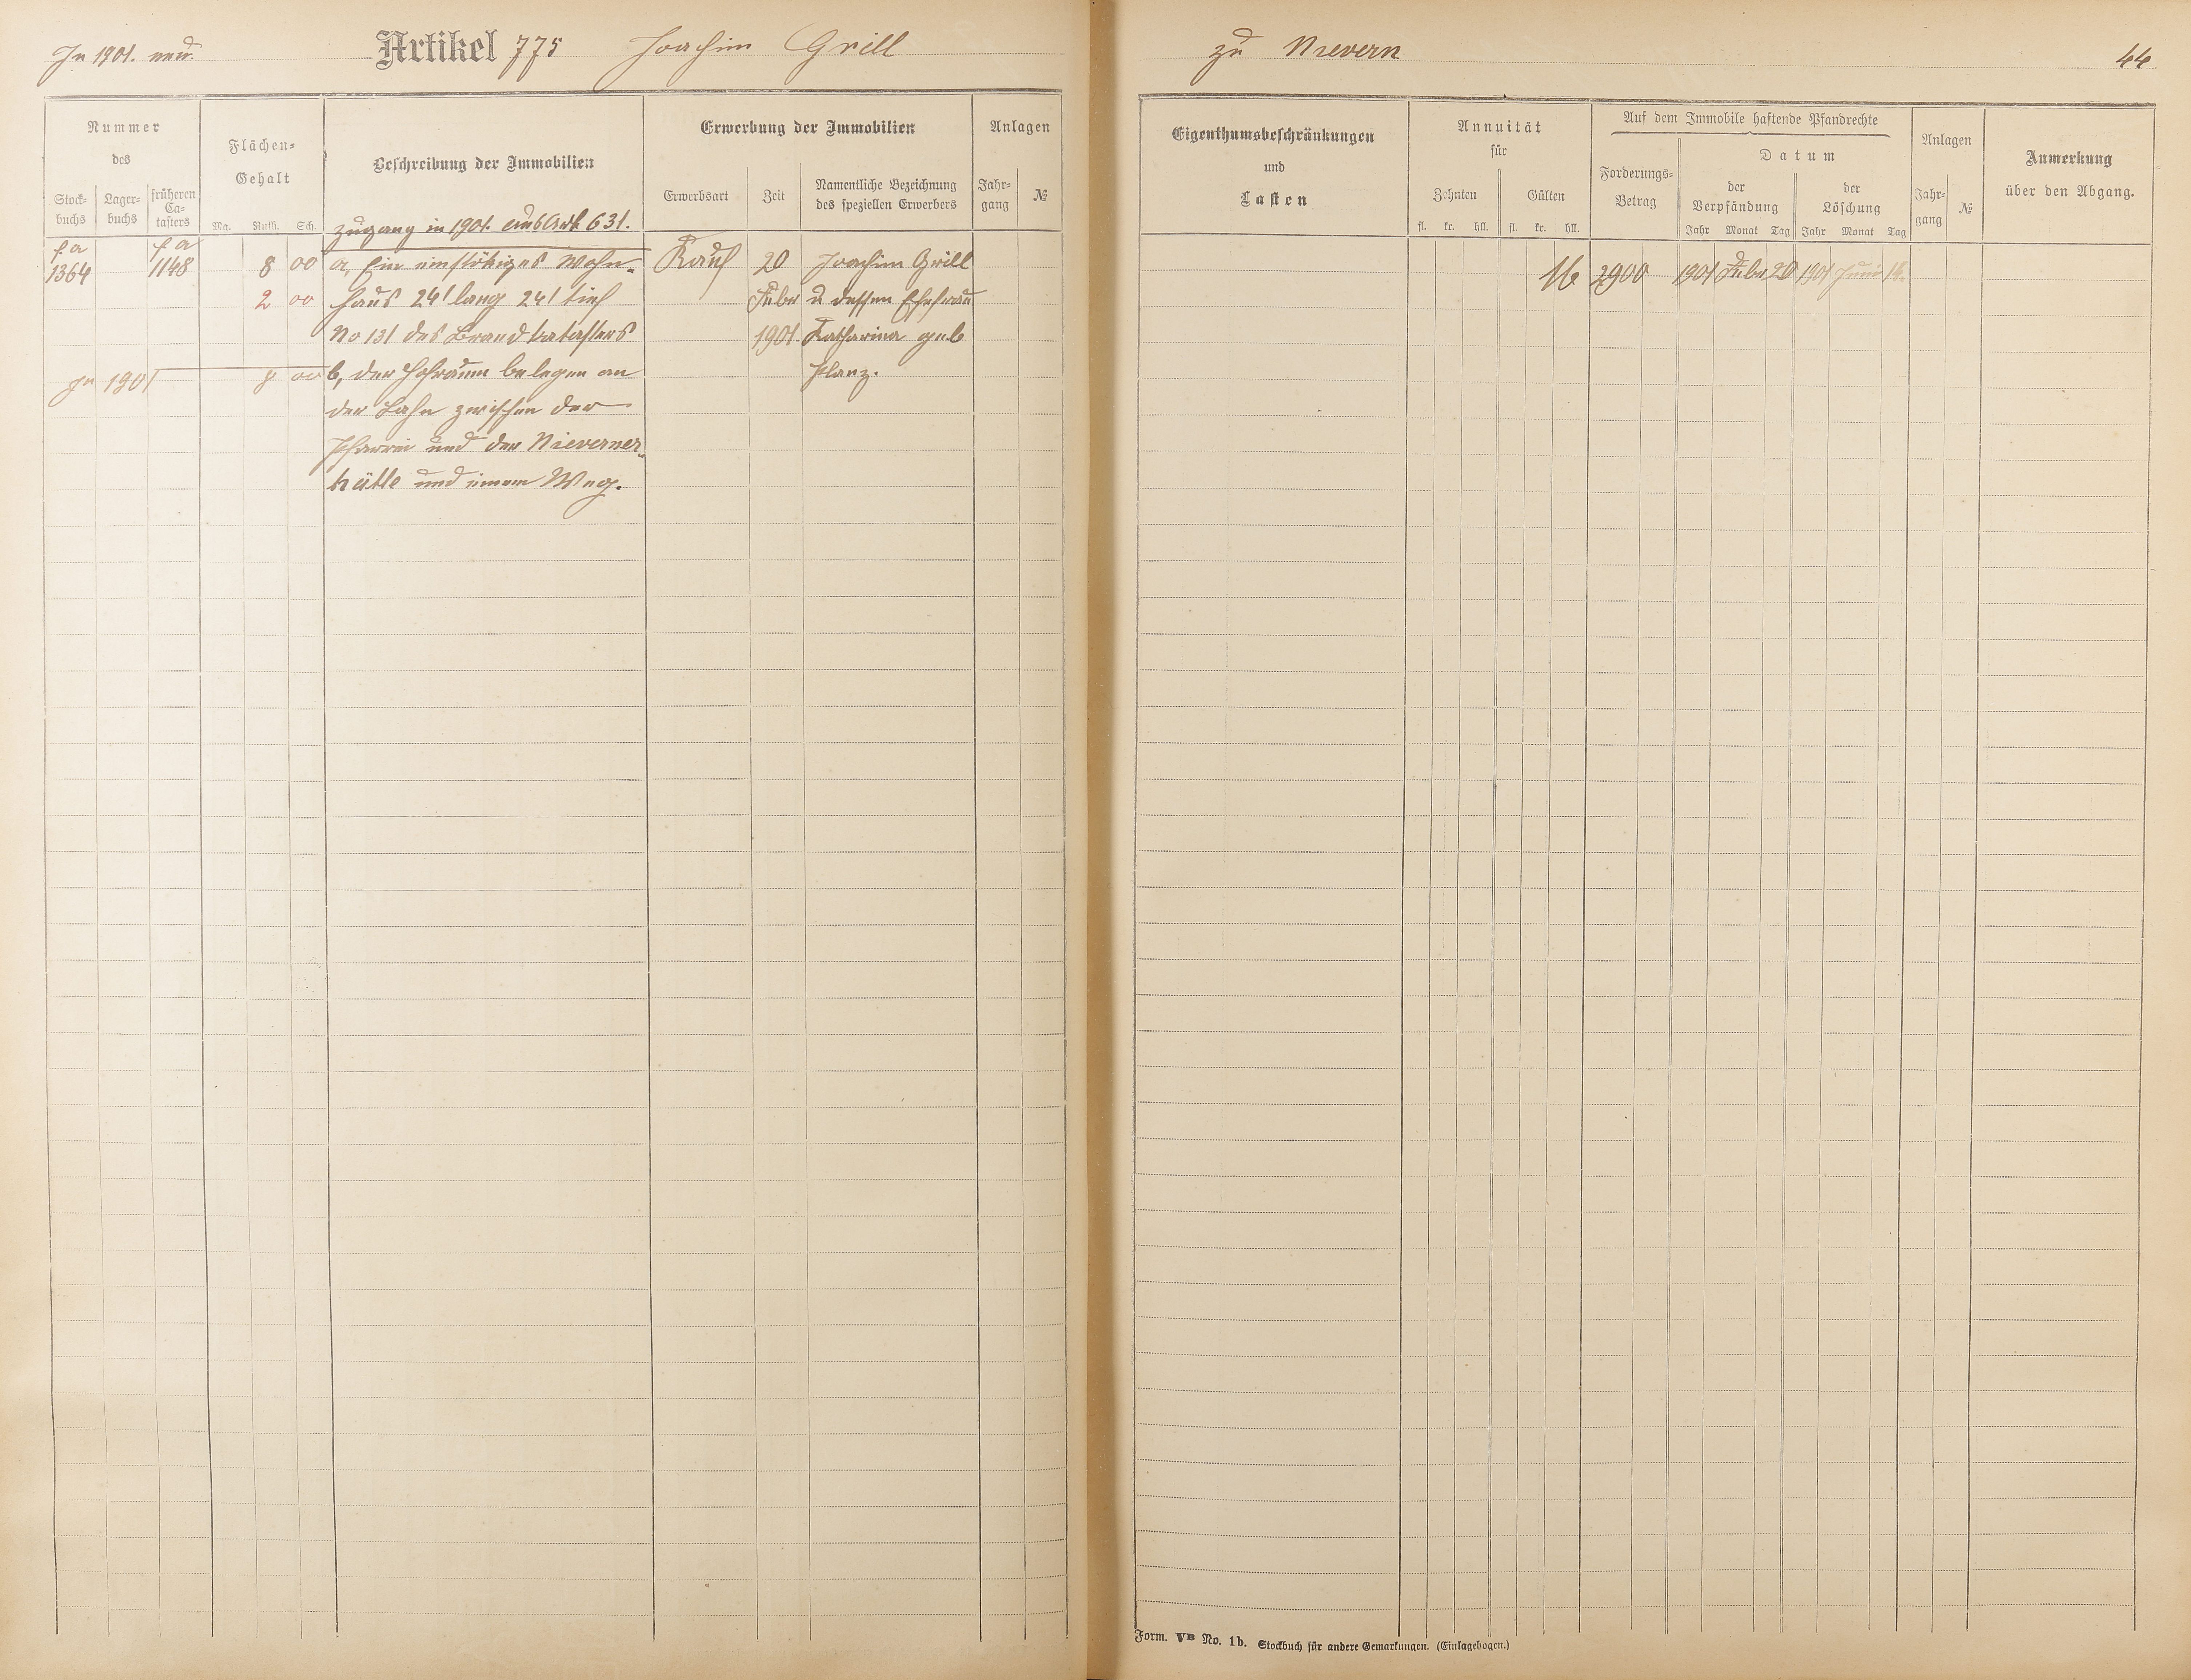 In 1901. neu.
Artikel 775 Joachim Grill
zu Nievern
44
Nummer
des
Stock-
buchs
Lager-
buchs
früheren
Ca-
tasters
Flächen-
Gehalt
Mg. Ruth. Sch.
Beschreibung der Immobilien
Erwerbung der Immobilien
Erwerbsart
Zeit
Namentliche Bezeichnung
des speziellen Erwerbers
Anlagen
Jahr-
gang
№
Eigenthumsbeschränkungen
und
Lasten
Annuität
für
Zehnten
Gülten
fl. kr. hll. fl. kr. hll.
Auf dem Immobile haftende Pfandrechte
Forderungs-
Betrag
Datum
der
Verpfändung
der
Löschung
Jahr Monat Tag Jahr Monat Tag
Anlagen
Jahr-
gang
№
Anmerkung
über den Abgang.
Zugang in 1901. aus Art 631.
1364 1148 8 00 a, Ein einstökiges Wohn- Kauf 20 Joachim Grill 2900 1901 Febr 20 1901 Juni
2 00 haus 24' lang 24' tief Febr u dessen Ehefrau
No 131 des Brandkatasters 1901. Katharina geb
In 1901 8 00 b, der Hofraum belegen an Planz.
der Lahn zwischen der
Pfarrei und der Nieverner-
hütte und einem Weg.
Form. VB No. 1b. Stockbuch für andere Gemarkungen. (Einlagebogen.)